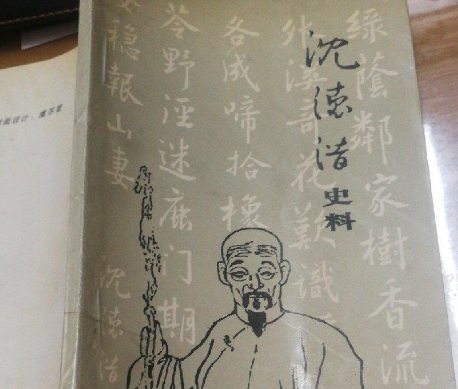 沈德潜
史料
绿荫邻家树香流
外溪奇花叹识
各成啼拾橡
苓野淫迷鹿门期
安稳报山妻
沈德潜